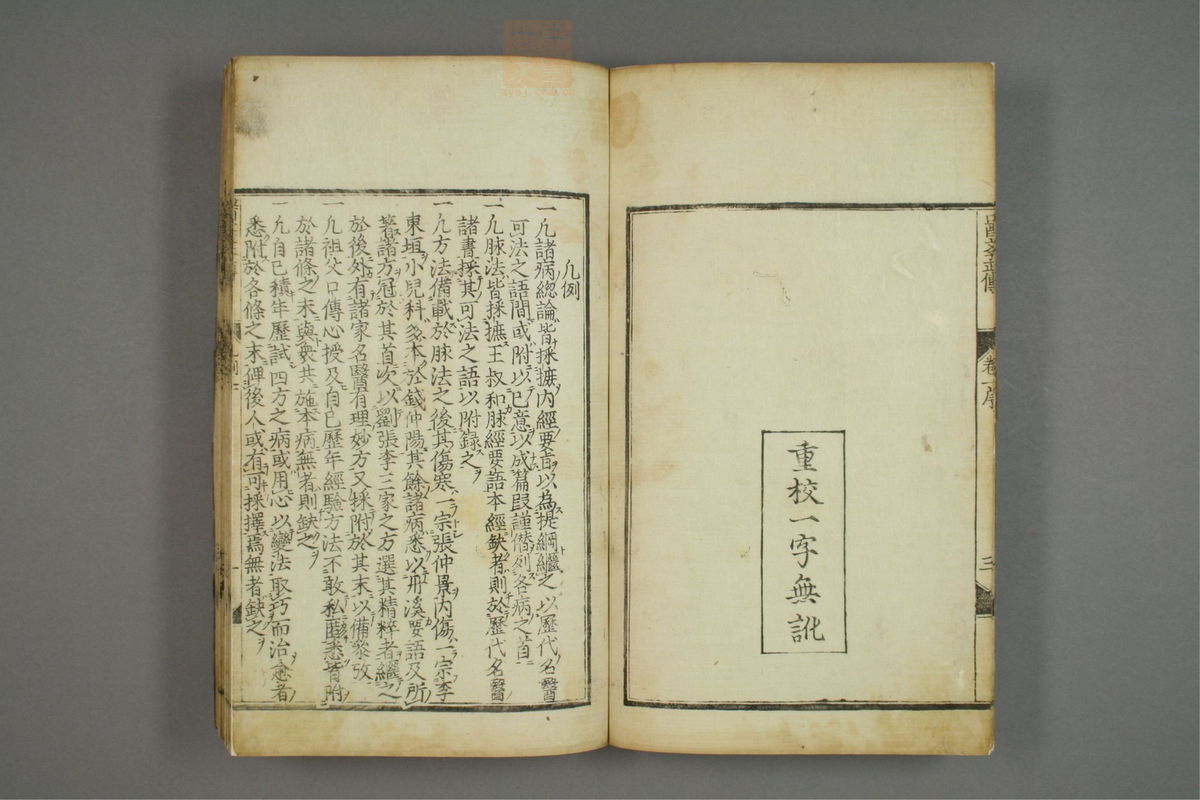 醫學正傳
卷一序
三
重校一字無訛
凡例
一凡諸病總論皆採摭内經要旨以為提綱繼之以歷代名醫
可法之語間或附以己意以成篇段謹僭列各病之首
一凡脉法皆採摭王叔和脉經要語本經缺者則於歷代名醫
諸書採其可法之語以附録之
一凡方法備載於脉法之後其傷寒一宗張仲景内傷一宗李
東垣小兒科多本於錢仲陽其餘諸病悉以丹溪要語及所
著諸方冠於其首次以劉張李三家之方選其精粹者繼之
於後外有諸家名醫有理妙方又採附於其末以備參攷
一凡祖父口傳心授及自己歷年經驗方法不敢私匿悉皆附
於諸條之末與衆共施本病無者則缺之
一凡自己積年歷試四方之病或用心以變法取巧而治愈者
悉附於各條之末俾後人或有可採擇焉無者缺之
凡例
一